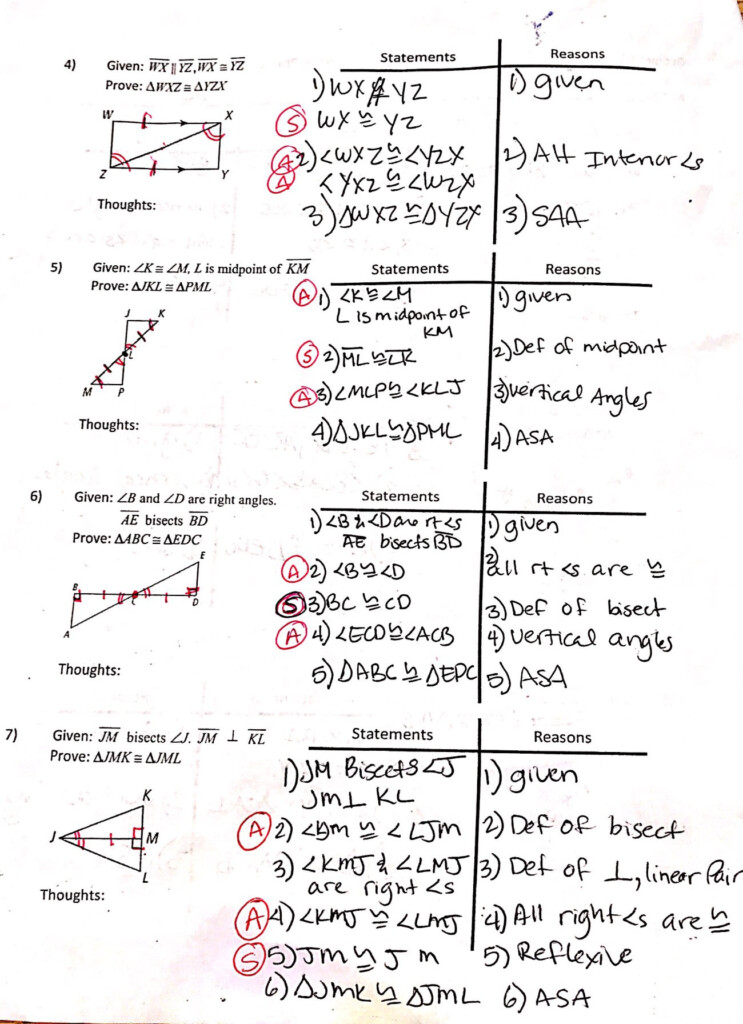 4) Given: WX ∥ YZ, WX ≅ YZ
Prove: ΔWXZ ≅ ΔYZX
W X
Z Y
Thoughts:
Statements Reasons
1) WX ∦ YZ 1) given
S WX ≅ YZ
A 2) <WXZ ≅ <YZX 2) Alt Interior <s
A <YXZ ≅ <WZX
3) ΔWXZ ≅ ΔYZX 3) SAA
5) Given: ∠K ≅ ∠M, L is midpoint of KM
Prove: ΔJKL ≅ ΔPML
J K
L
M P
Thoughts:
Statements Reasons
A 1) <K ≅ <M 1) given
L is midpoint of
KM
S 2) ML ≅ LK 2) Def of midpoint
A 3) <MLP ≅ <KLJ 3) vertical Angles
4) ΔJKL ≅ ΔPML 4) ASA
6) Given: ∠B and ∠D are right angles.
AE bisects BD
Prove: ΔABC ≅ ΔEDC
E
B C D
A
Thoughts:
Statements Reasons
1) <B & <D are rt <s 1) given
AE bisects BD
A 2) <B ≅ <D 2) all rt <s are ≅
S 3) BC ≅ CD 3) Def of bisect
A 4) <ECD ≅ <ACB 4) vertical angles
5) ΔABC ≅ ΔEDC 5) ASA
7) Given: JM bisects ∠J. JM ⊥ KL
Prove: ΔJMK ≅ ΔJML
K
J M
L
Thoughts:
Statements Reasons
1) JM Bisects <J 1) given
JM ⊥ KL
A 2) ≅ < LJM 2) Def of bisect
3) <KMJ & <LMJ 3) Def of ⊥, linear Pair
are right <s
A 4) <KMJ ≅ <LMJ 4) All right <s are ≅
S 5) JM ≅ JM 5) Reflexive
6) ΔJMK ≅ ΔJML 6) ASA